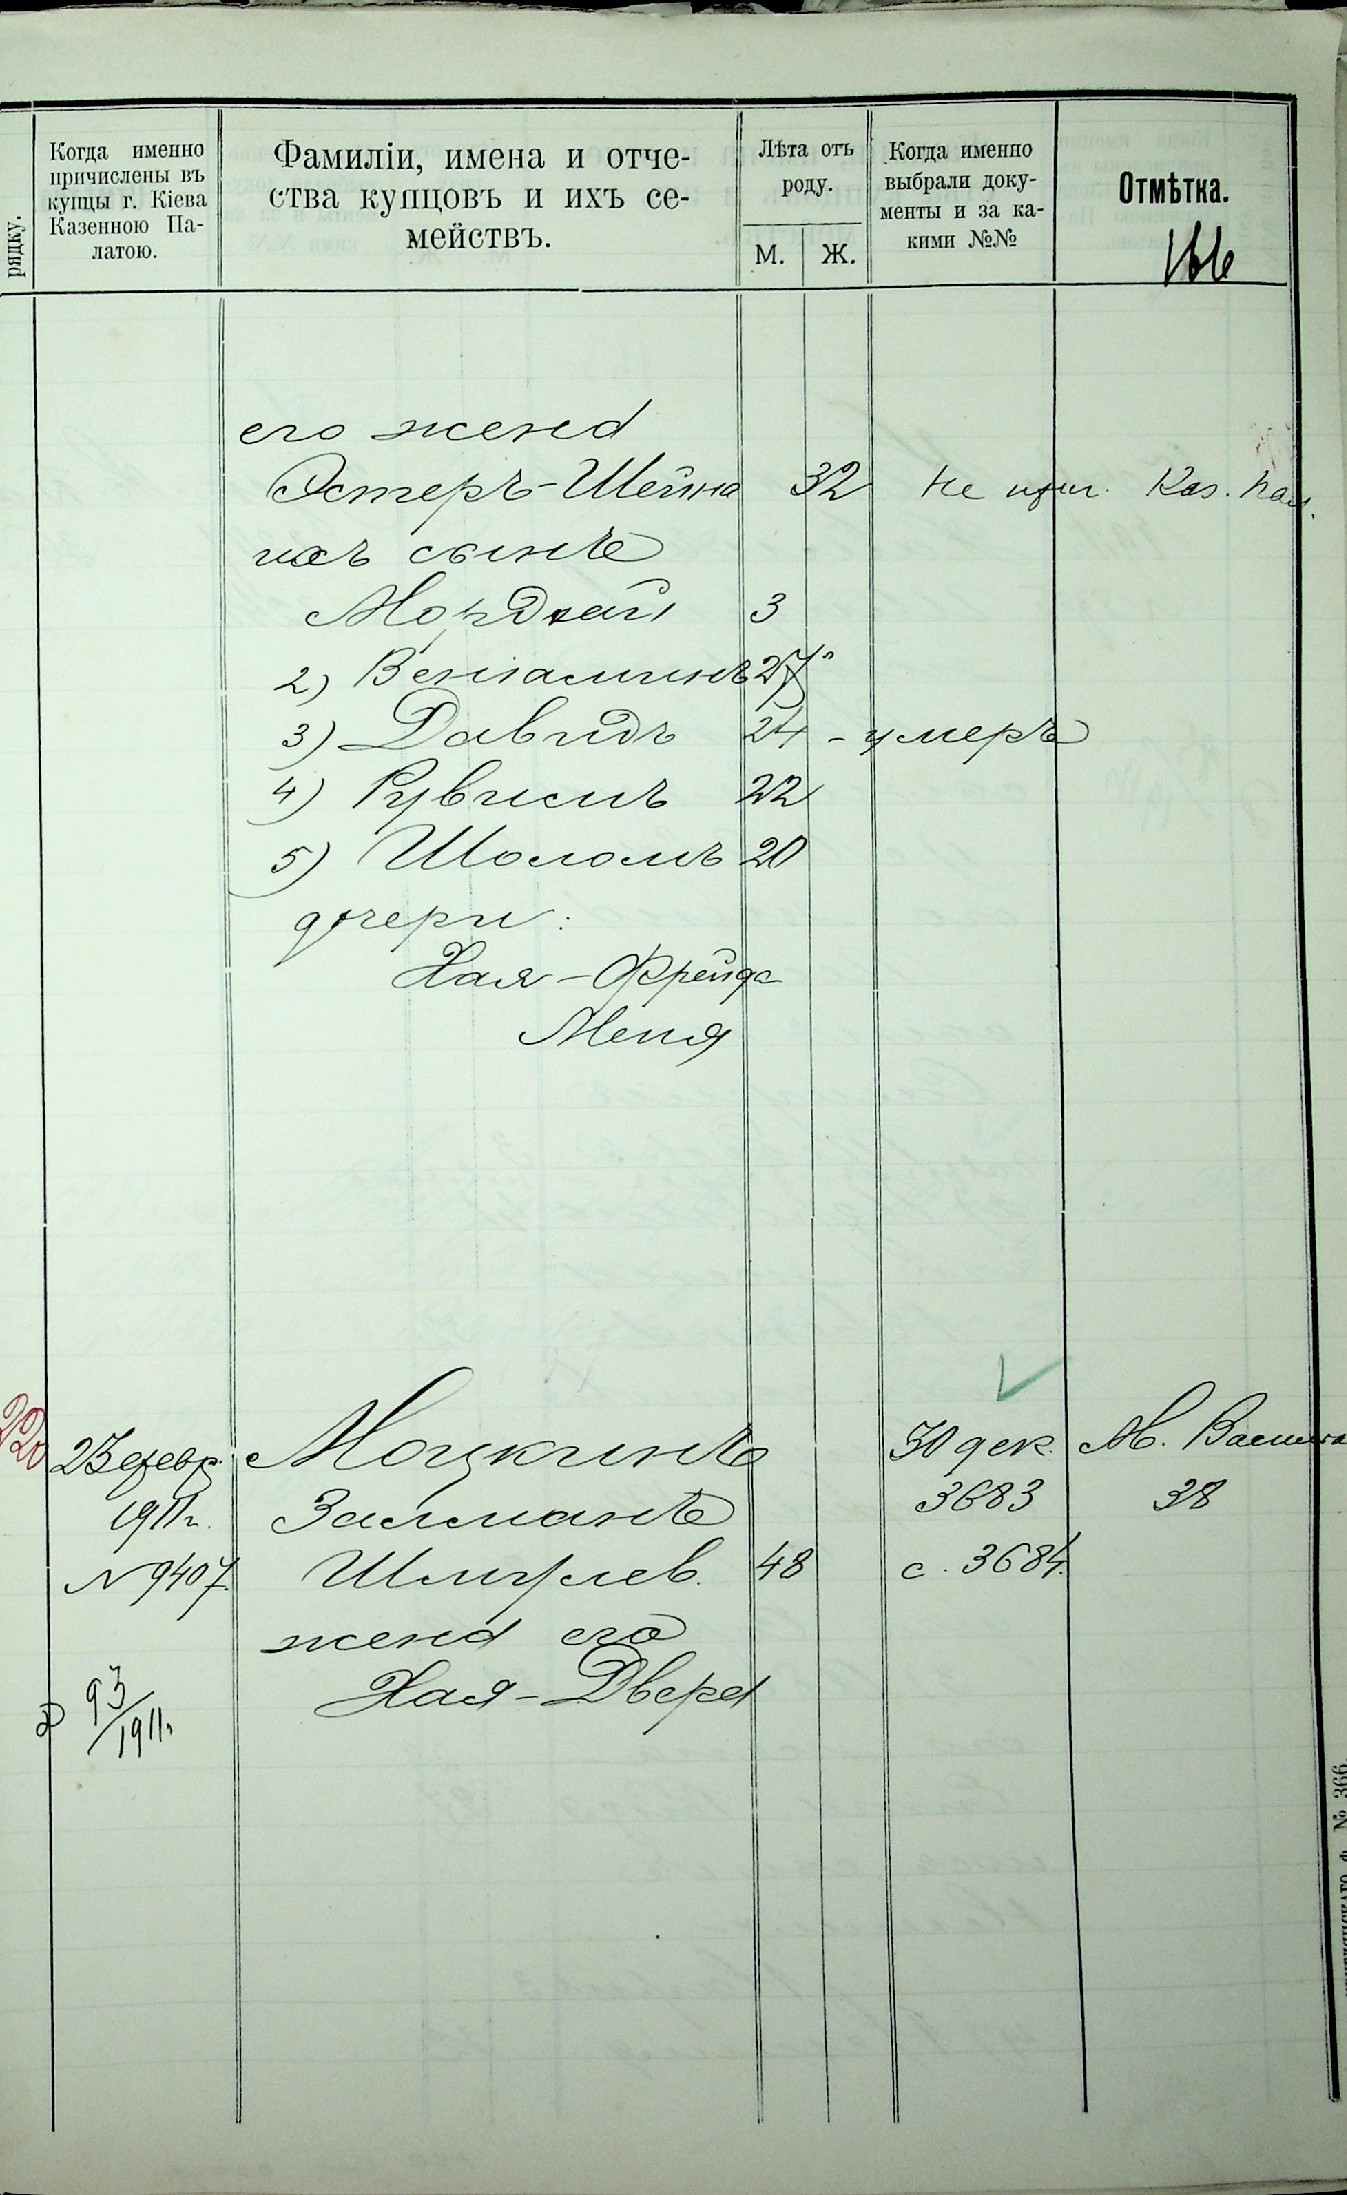 рядку.
Когда именно
причислены въ
купцы г. Кіева
Казенною Па-
латою.
Фамиліи, имена и отче-
ства купцовъ и ихъ се-
мействъ.
Лѣта отъ
роду.
М. Ж.
Когда именно
выбрали доку-
менты и за ка-
кими №№
Отмѣтка.
166
его жена
Эстеръ-Шейна 32 Не прич. Каз. Пал.
ихъ сынъ
Мордхай 3
2) Веніаминъ 27
3) Давидъ 24 - умеръ
4) Рувимъ 22
5) Шоломъ 20
дочери:
Хая-Фрейда
Меня
220
23 февр. Моцкинъ 30 дек. М. Васильк
1911 г. Залманъ 3683 38
N 9407 Шмулев. 48 с. 3684.
жена его
Хая-Двера
93/1911.
№ 366.